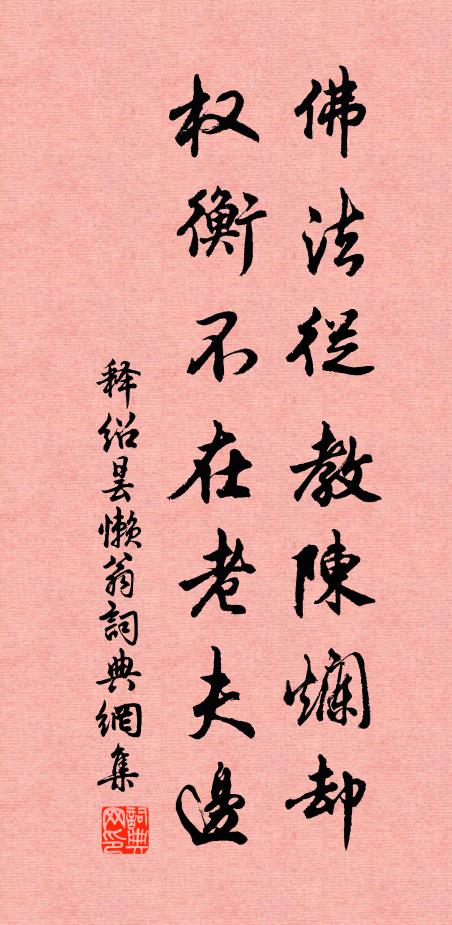 佛法從教陳爛却
权衡不在老夫邊
释绍昙懒翁詞典網集
詞典网印